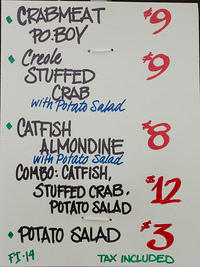 CRABMEAT $9
PO.BOY
Creole $9
STUFFED
CRAB
with Potato Salad
CATFISH $8
ALMONDINE
with Potato Salad
COMBO: CATFISH,
STUFFED CRAB, $12
POTATO SALAD
POTATO SALAD $3
FI-14 TAX INCLUDED